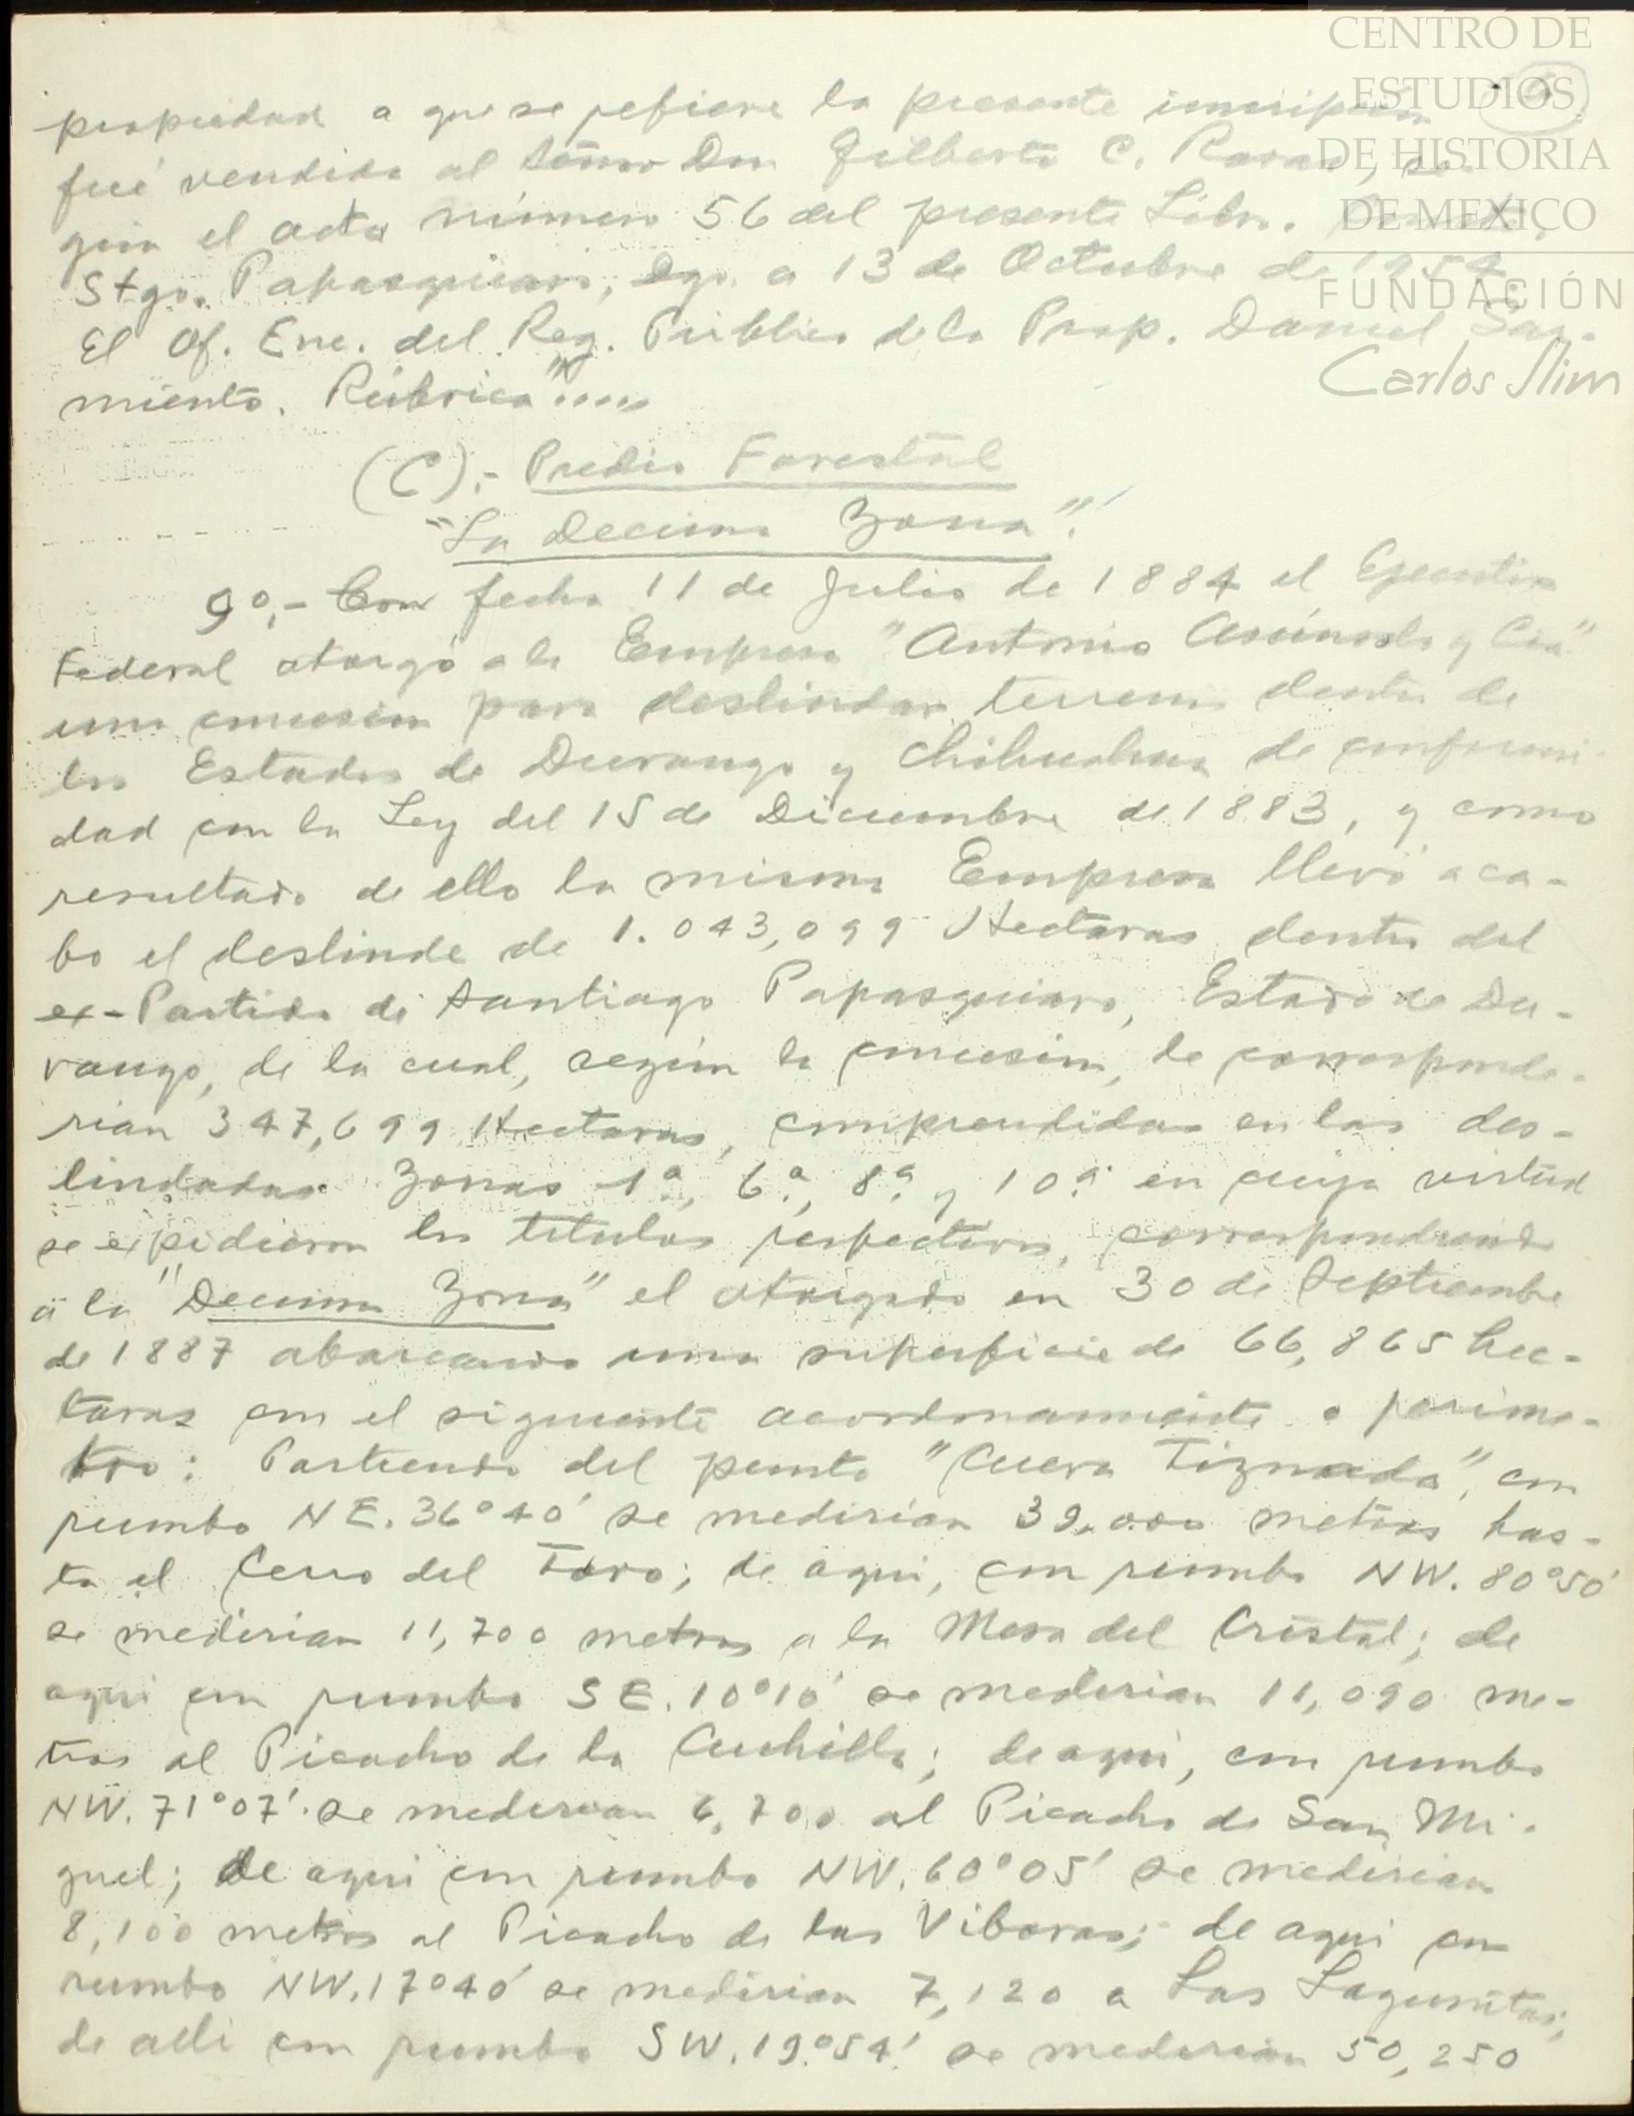 CENTRO DE
ESTUDIOS
DE HISTORIA
DE MEXICO
FUNDACIÓN
Carlos Slim
propiedad a que se refiere la presente inscripción
fué vendida al Señor Don Gilberto C. Rosas, se-
gún el acta número 56 del presente Libro.
Stgo. Papasquiaro, Dgo. a 13 de Octubre de 1954
El Of. Enc. del Reg. Público de la Prop. Daniel Sar-
miento. Rúbrica"....
(C).- Predio Forestal
"La Decima Zona".
9o.- Con fecha 11 de Julio de 1884 el Ejecutivo
Federal otorgó a la Empresa "Antonio Asúnsolo y Cía"
una concesión para deslindar terrenos dentro de
los Estados de Durango y Chihuahua de conformi-
dad con la Ley del 15 de Diciembre de 1883, y como
resultado de ello la misma Empresa llevó a ca-
bo el deslinde de 1.043,099 Hectáras dentro del
ex-Partido de Santiago Papasquiaro, Estado de Du-
rango, de la cual, según la concesión, le corresponde-
rían 347,699 Hectaras, comprendidas en las des-
lindadas Zonas 1a, 6a, 8a y 10a en cuya virtud
se expidieron los titulos respectivos, correspondiendo
a la "Decima Zona" el otorgado en 30 de Septiembre
de 1887 abarcando una superficie de 66,865 hec-
taras con el siguiente acordonamiento o perime-
tro: Partiendo del punto "Cueva Tiznada", con
rumbo NE. 36°40' se medirían 39,000 metros has-
ta el Cerro del Toro; de aqui, con rumbo NW. 80°50'
se medirían 11,700 metros a la Mesa del Cristal; de
aqui con rumbo SE. 10°10' se medirian 11,090 me-
tros al Picacho de la Cuchilla; de aqui, con rumbo
NW. 71°07' se medirian 6,700 al Picacho de San Mi-
guel; de aqui con rumbo NW. 60°05' se medirian
8,100 metros al Picacho de las Viboras; de aqui con
rumbo NW. 17°40' se medirian 7,120 a Las Lagunitas;
de alli con rumbo SW. 19°54' se medirian 50,250